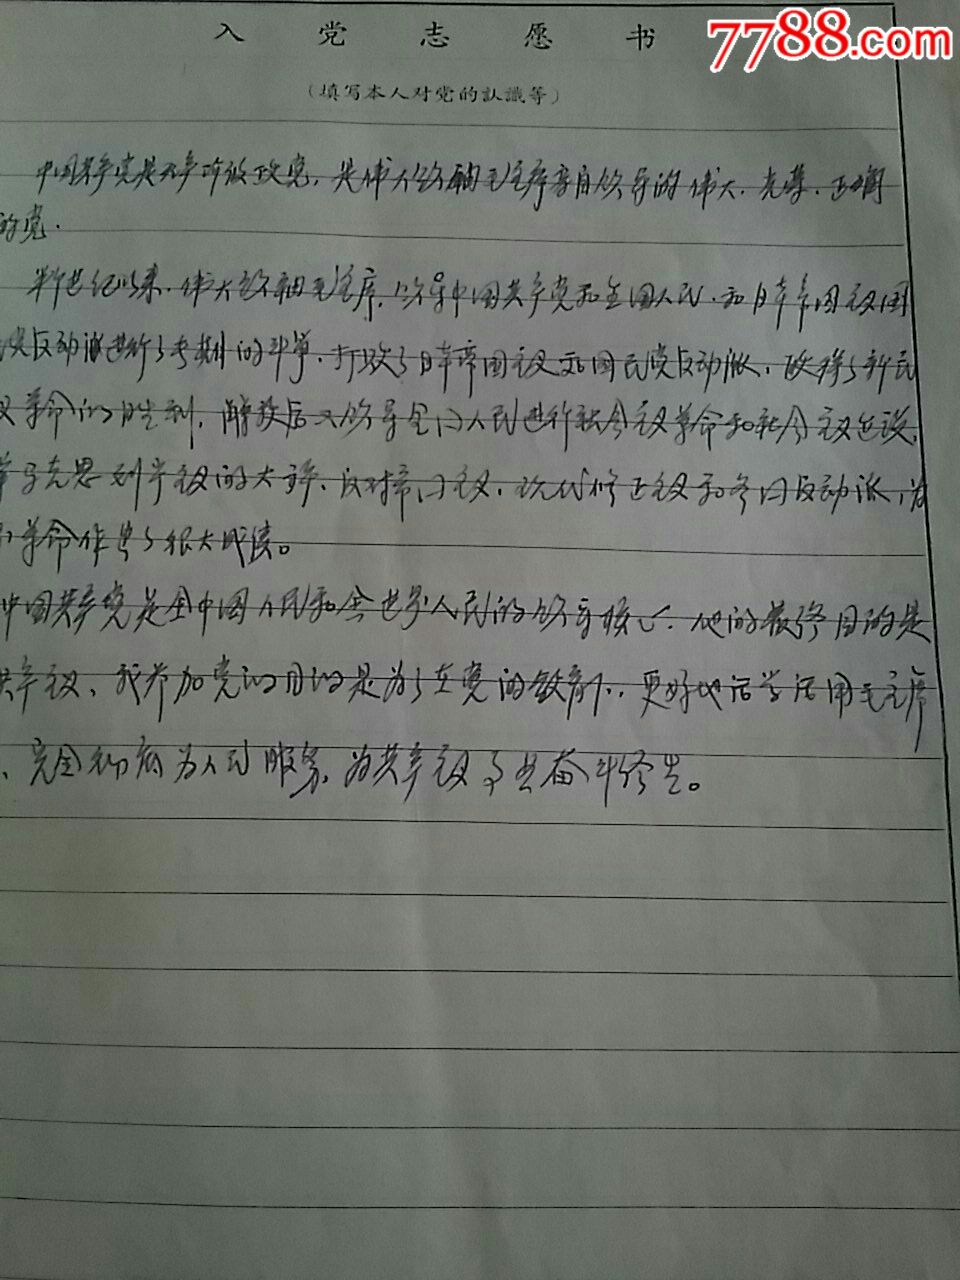 7788.com
入党志愿书
(填写本人对党的认識等)
中国共产党是无产阶级政党，是伟大领袖毛主席亲自领导的伟大、光荣、正确
的党.
半个世纪以来，伟大领袖毛主席，领导中国共产党和全国人民，和日本帝国主义国
党反动派进行了长期的斗争，打败了日本帝国主义和国民党反动派，取得了新民
义革命的胜利，解放后又领导全国人民进行社会主义革命和社会主义建设，
马克思列宁主义的大旗、反对帝国主义，现代修正主义和各国反动派，为
革命作出了很大成绩。
中国共产党是全中国人民和全世界人民的领导核心，他的最终目的是
共产主义，我参加党的目的是为了在党的教育下，更好地活学活用毛主席
、完全彻底为人民服务，为共产主义事业奋斗终生。